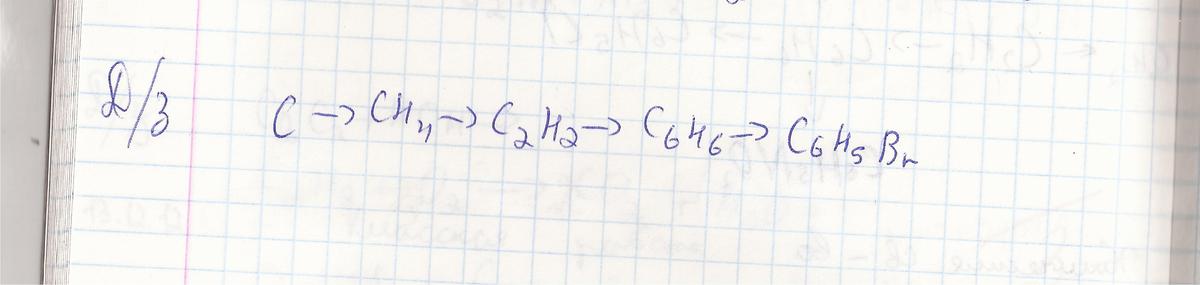 Д/З C → CH₄ → C₂H₂ → C₆H₆ → C₆H₅Br